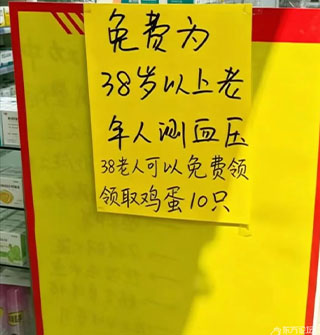 免费为
38岁以上老
年人测血压
38老人可以免费领
领取鸡蛋10只